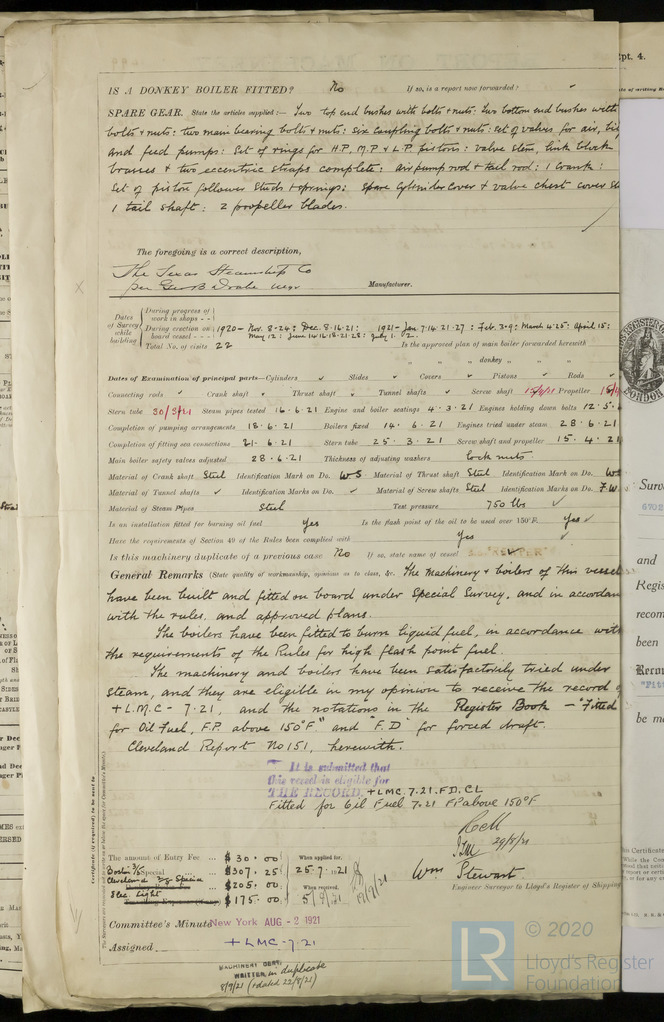 IS A DONKEY BOILER FITTED? No If so, is a report now forwarded?
SPARE GEAR. State the articles supplied:— Two top end bushes with bolts & nuts: Two bottom end bushes with
bolts & nuts: two main bearing bolts & nuts: six coupling bolts & nuts: set of valves for air,
and feed pumps: Set of rings for H.P, M.P & L.P. pistons: valve stem, link block
brasses & two eccentric straps complete: air pump rod & tail rod: 1 crank:
Set of piston follower studs & springs: Spare cylinder cover & valve chest cover
1 tail shaft: 2 propeller blades.
The foregoing is a correct description,
The Texas Steamship Co
per Manufacturer.
Dates of Survey while building
During progress of work in shops - -
During erection on board vessel - - -
1920 - Nov. 8.24: Dec. 8.16.21: 1921 - Jan 7.14.21.27: Feb. 3.9: March 4.25: April 15:
May 12: June 14.16.18.21.28: July 1.2.
Total No. of visits 22
Is the approved plan of main boiler forwarded herewith
" " " donkey " " "
Dates of Examination of principal parts—Cylinders Slides Covers Pistons Rods
Connecting rods Crank shaft Thrust shaft Tunnel shafts Screw shaft 15/4/21 Propeller
Stern tube 30/3/21 Steam pipes tested 16.6.21 Engine and boiler seatings 4.3.21 Engines holding down bolts 12.5.
Completion of pumping arrangements 18.6.21 Boilers fixed 14.6.21 Engines tried under steam 28.6.21
Completion of fitting sea connections 21.6.21 Stern tube 25.3.21 Screw shaft and propeller 15.4.21
Main boiler safety valves adjusted 28.6.21 Thickness of adjusting washers lock nuts.
Material of Crank shaft Steel Identification Mark on Do. WS Material of Thrust shaft Steel Identification Mark on Do.
Material of Tunnel shafts Identification Marks on Do. Material of Screw shafts Steel Identification Marks on Do. F.W.
Material of Steam Pipes Steel Test pressure 750 lbs
Is an installation fitted for burning oil fuel Yes Is the flash point of the oil to be used over 150°F. Yes
Have the requirements of Section 49 of the Rules been complied with Yes
Is this machinery duplicate of a previous case No If so, state name of vessel
General Remarks (State quality of workmanship, opinions as to class, &c. The machinery & boilers of this vessel
have been built and fitted on board under Special Survey, and in accordan
with the rules, and approved plans.
The boilers have been fitted to burn liquid fuel, in accordance with
the requirements of the Rules for high flash point fuel.
The machinery and boilers have been satisfactorily tried under
steam, and they are eligible in my opinion to receive the record of
+ L.M.C - 7.21, and the notations in the Register Book — "Fitted
for Oil Fuel, F.P. above 150°F" and "F.D" for forced draft.
Cleveland Report No 151, herewith.
It is submitted that
this vessel is eligible for
THE RECORD. + LMC. 7.21. FD. CL
Fitted for Oil Fuel 7.21 FP above 150°F.
29/8/21
The amount of Entry Fee ... $ 30.00 When applied for,
Boston 3/5 Special ... $307.25 25.7.1921
Cleveland 2/5 Special $205.00 When received,
$175.00
Wm Stewart
Engineer Surveyor to Lloyd's Register of Shipping
Committee's Minute New York AUG - 2 1921
Assigned + LMC - 7.21
MACHINERY CERT.
WRITTEN in duplicate
8/9/21 (dated 22/8/21)
© 2020
LR Lloyd's Register
Foundation
pt. 4.
Surve
6702
and
Regis
recom
been
Recor
"Fitt
be ma